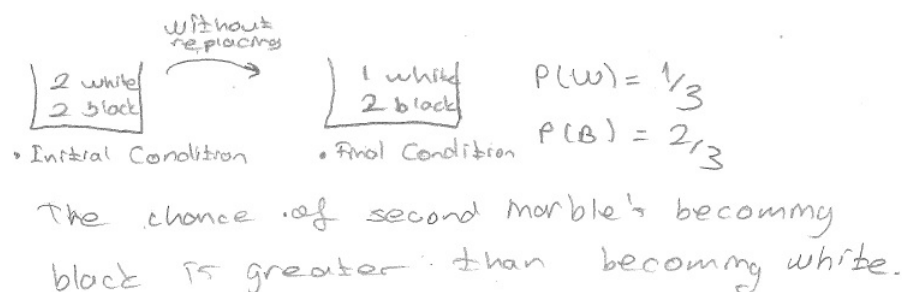 without
replacing
2 white
2 black
1 white
2 black
P(W) = 1/3
P(B) = 2/3
• Initial Condition
• Final Condition
The chance of second marble's becoming
black is greater than becoming white.